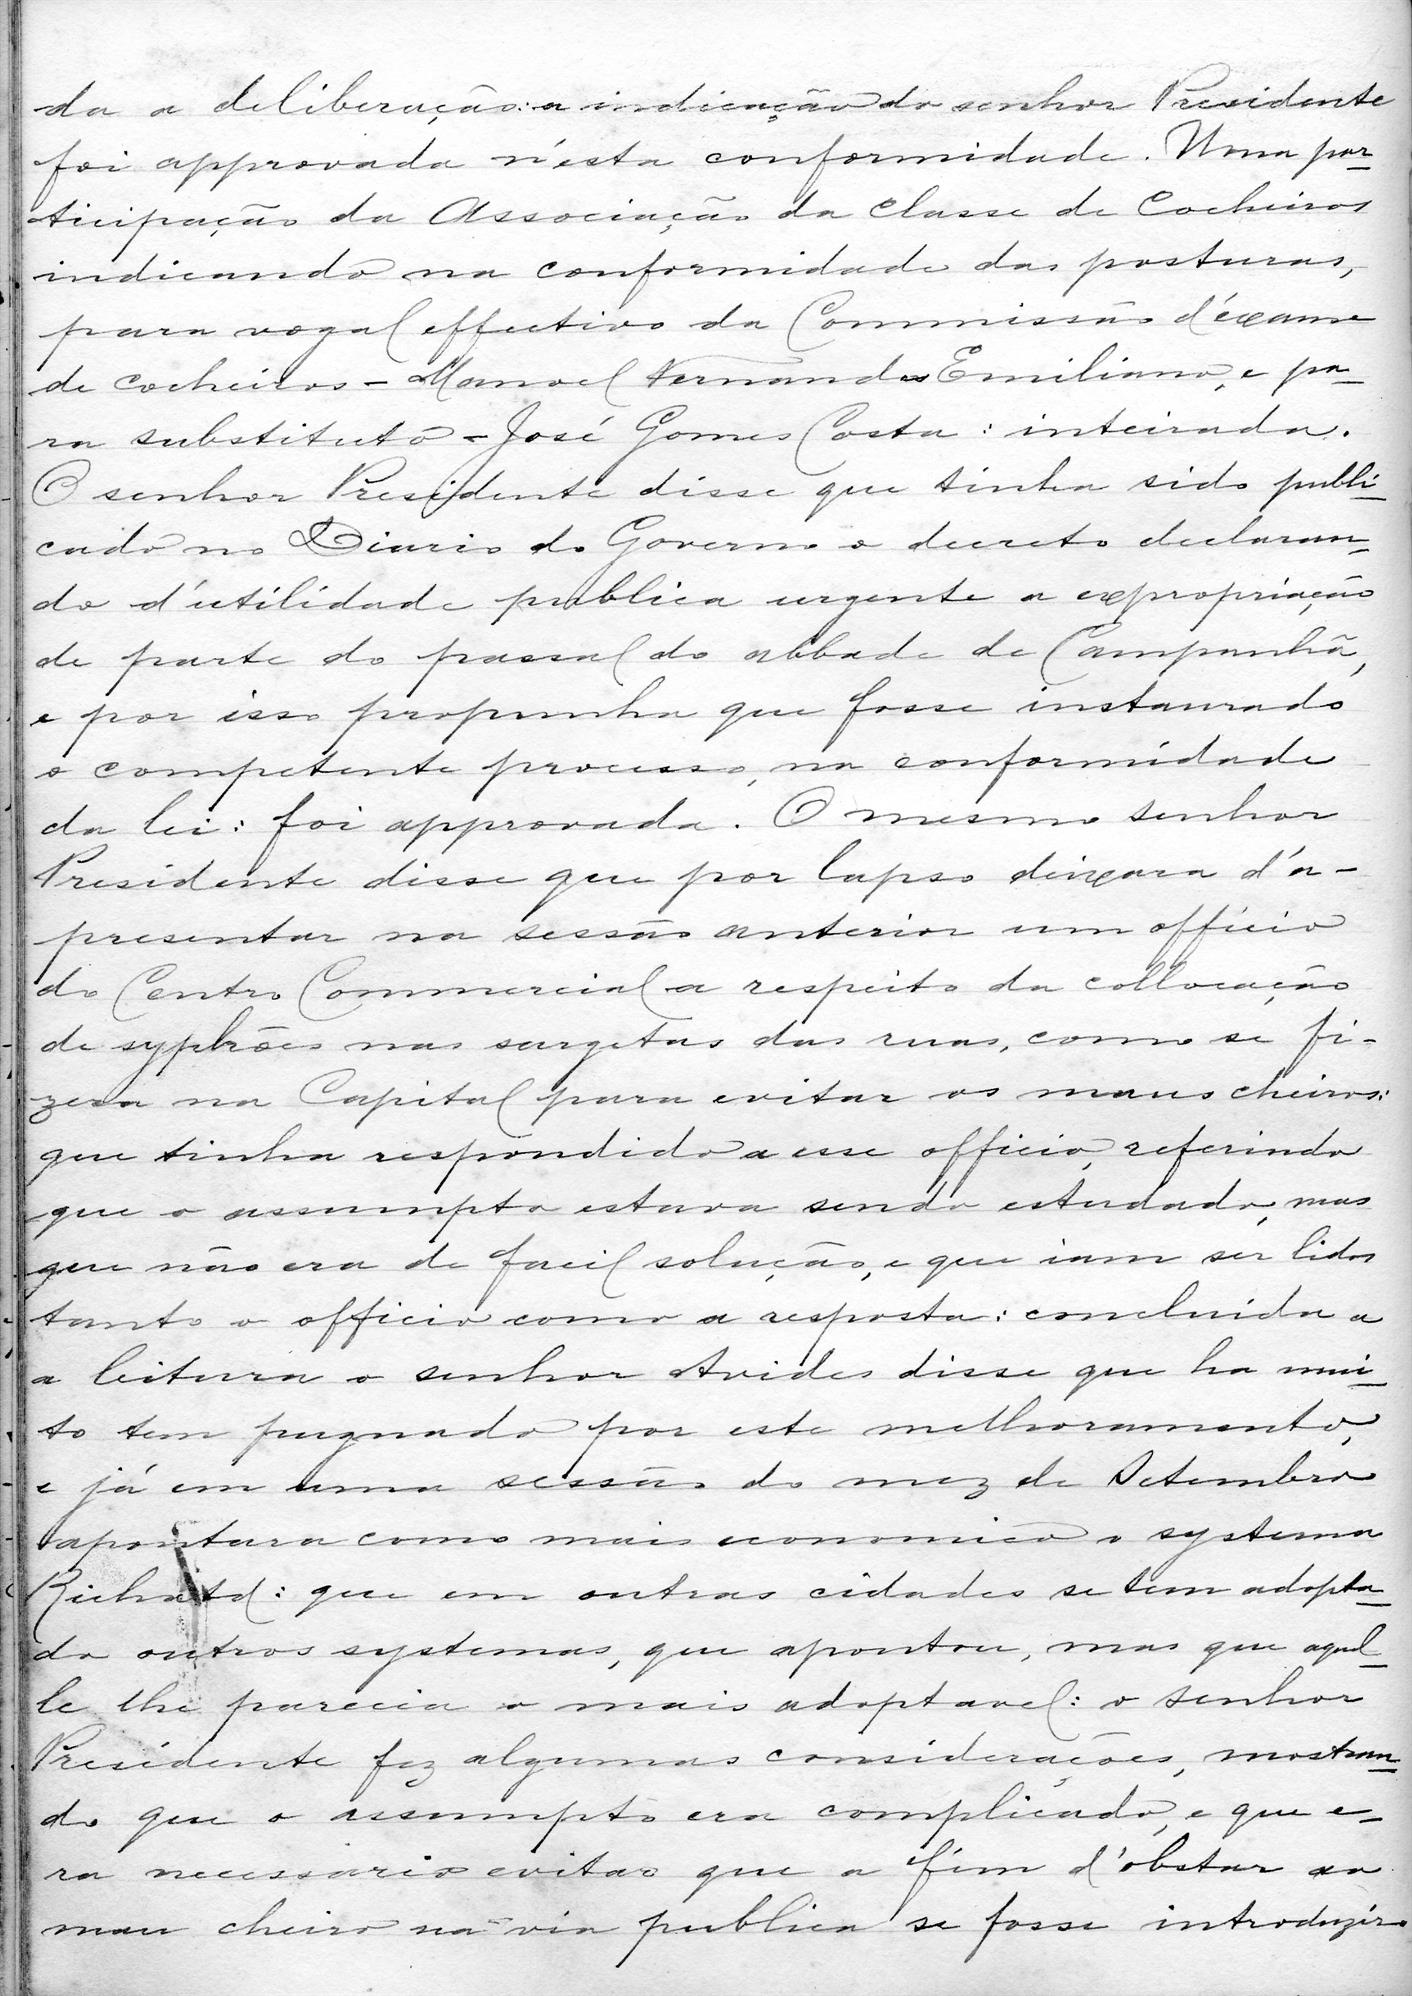 da a deliberação: a indicação do senhor Presidente
foi approvada n'esta conformidade. Uma par-
ticipação da Associação da classe de Cocheiros
indicando na conformidade das posturas,
para vogal effectivo da Commissão d'éxame
de cocheiros - Manoel Fernandes Emiliano, e pa-
ra substituto - José Gomes Costa: inteirada.
O senhor Presidente disse que tinha sido publi-
cado no Diario do Governo o decreto declaran-
do d'utilidade publica urgente a expropriação
de parte do passal do abbade de Campanhã,
e por isso propunha que fosse instaurado
o competente processo, na conformidade
da lei: foi approvada. O mesmo senhor
Presidente disse que por lapso deixara d'a-
presentar na sessão anterior um officio
do Centro Commercial a respeito da collocação
de syphões nas sargetas das ruas, como se fi-
zera na Capital para evitar os maus cheiros:
que tinha respondido a esse officio, referindo
que o assumpto estava sendo estudado, mas
que não era de facil solução, e que iam ser lidos
tanto o officio como a resposta: concluida a
a leitura o senhor Avides disse que ha mui-
to tem pugnado por este melhoramento,
e já em uma sessão do mez de Setembro
apontara como mais economico o systema
Richard: que em outras cidades se tem adopta-
do outros systemas, que apontou, mas que aquel-
le lhe parecia o mais adoptavel: o senhor
Presidente fez algumas considerações, mostran-
do que o assumpto era complicado, e que e-
ra necessario evitar que a fim d'obstar ao
mau cheiro na via publica se fosse introduzir